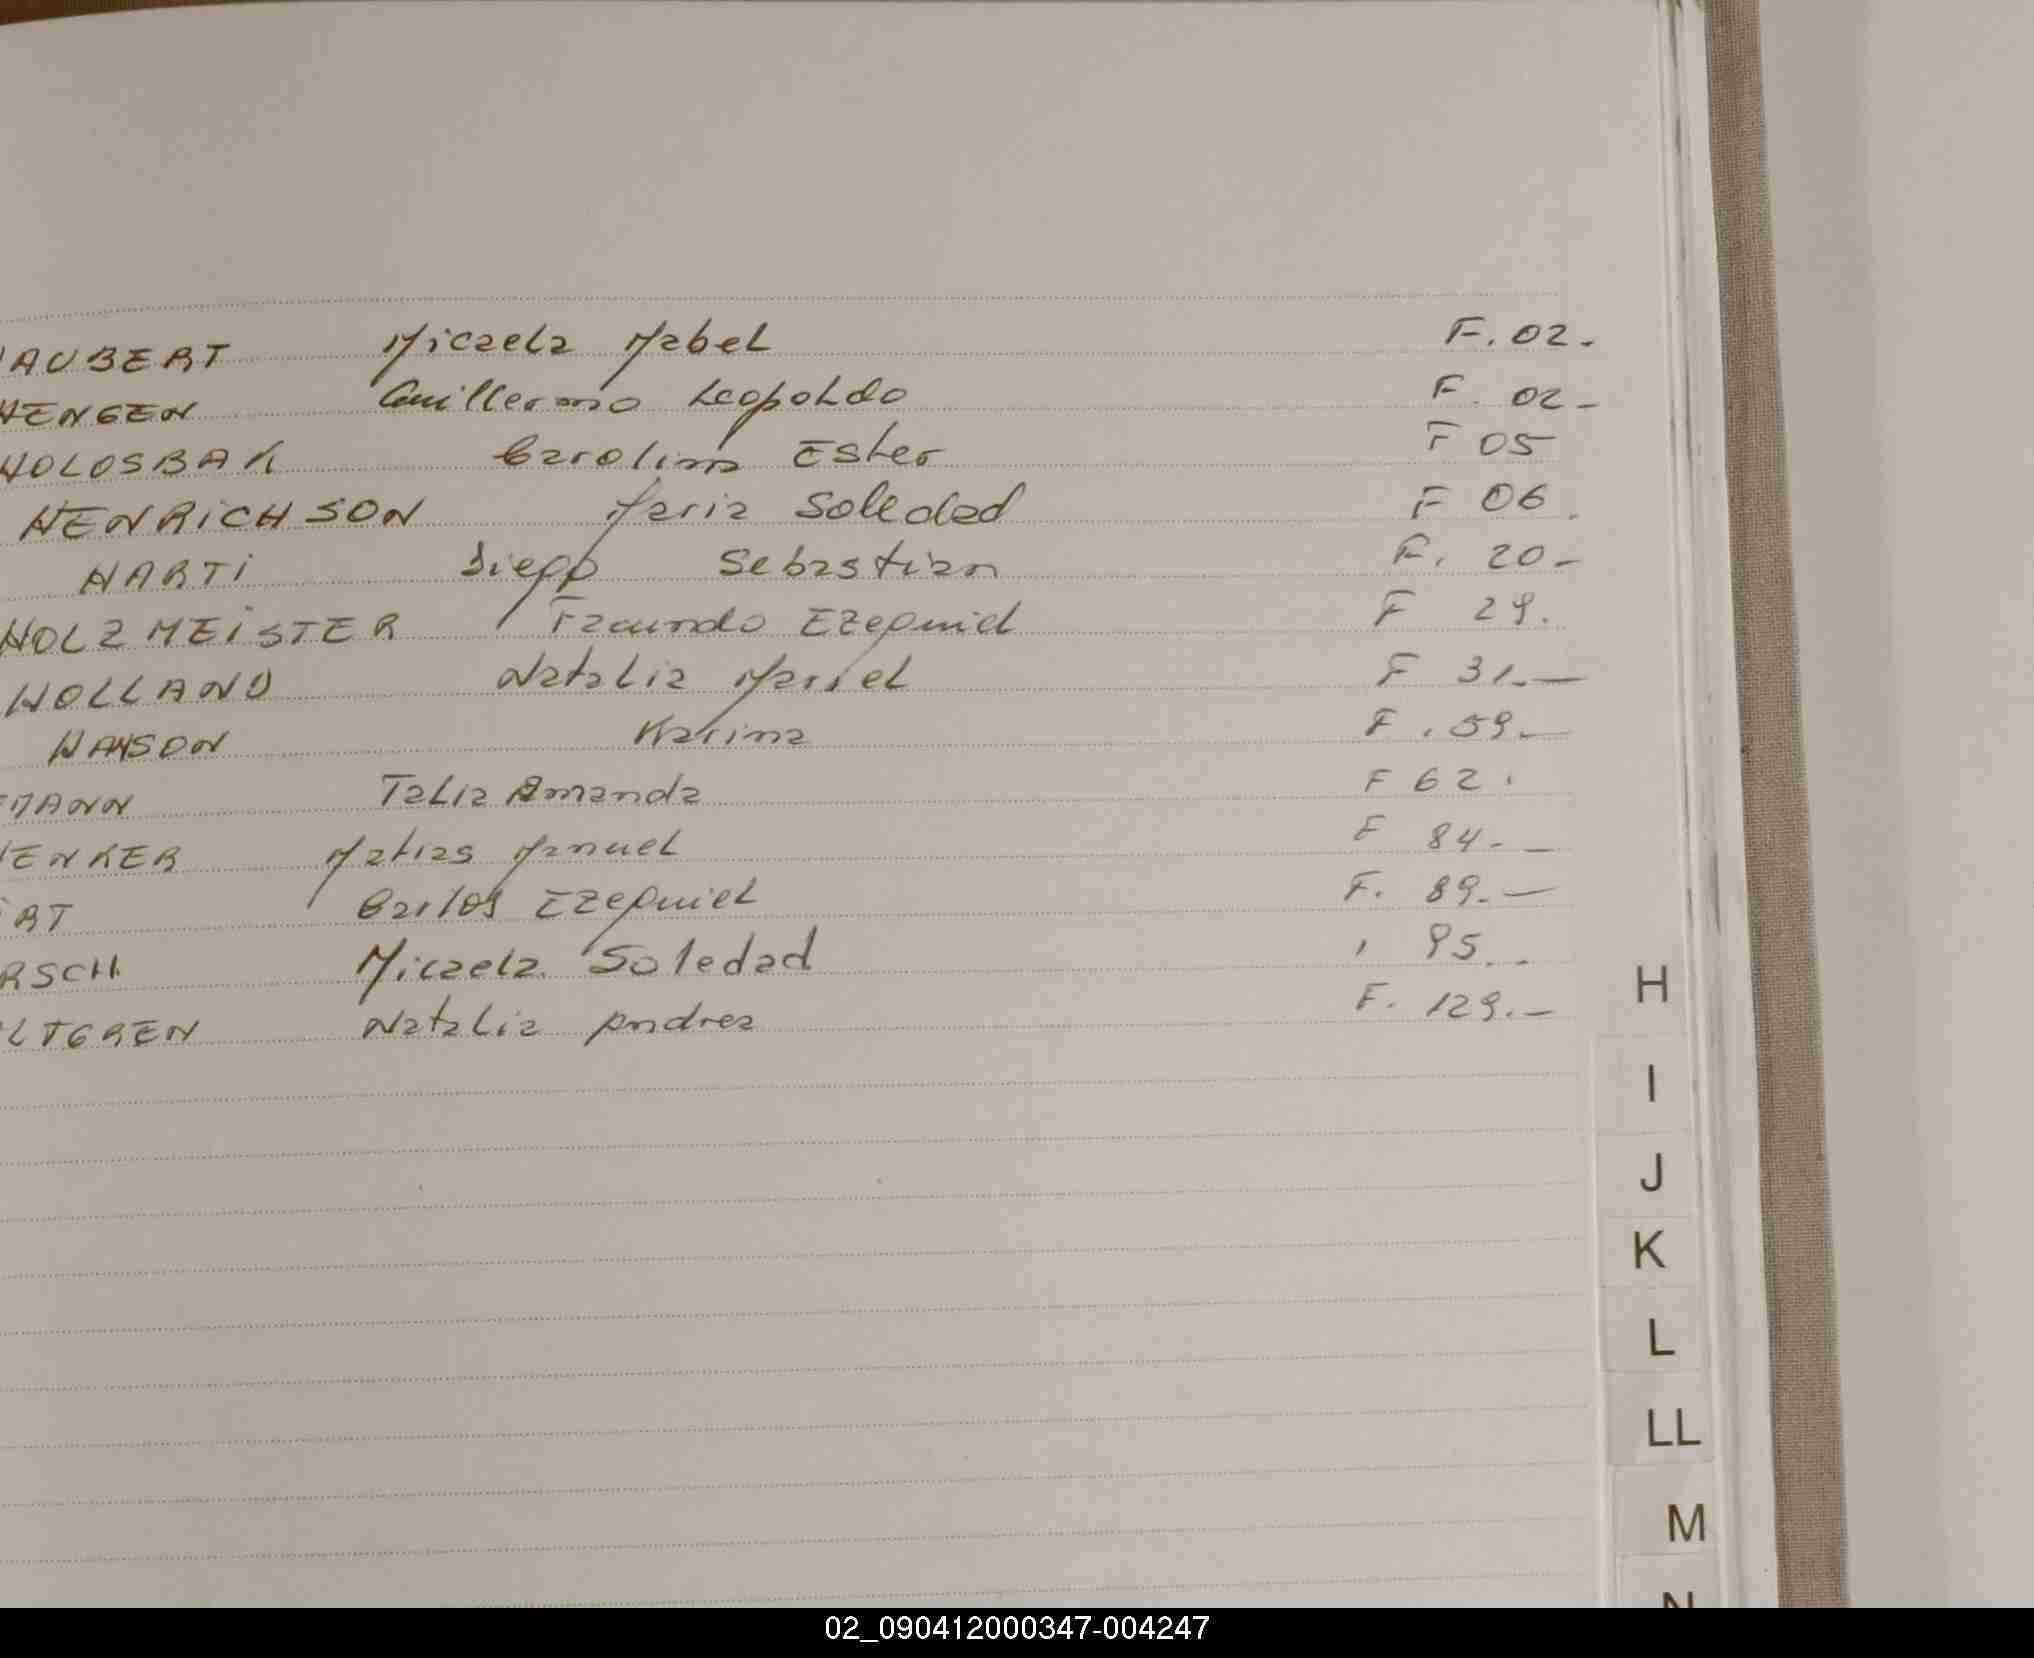 HAUBERT Micaela Mabel F. 02.
HENGEN Guillermo Leopoldo F. 02-
HOLOSBAK Carolina Ester F 05
HENRICHSON Maria Soledad F 06.
HARTI Diego Sebastian F. 20-
HOLZMEISTER Facundo Ezequiel F 29.
HOLLAND Natalia Mariel F 31.-
Karina F. 59.-
MANN Talia Amanda F 62.
HENKER Matias Manuel F 84.-
RT Carlos Ezequiel F. 89.-
RSCH Micaela Soledad 95.-
LTGREN Natalia Andrea F. 129.-
H
I
J
K
L
LL
M
N
02_090412000347-004247